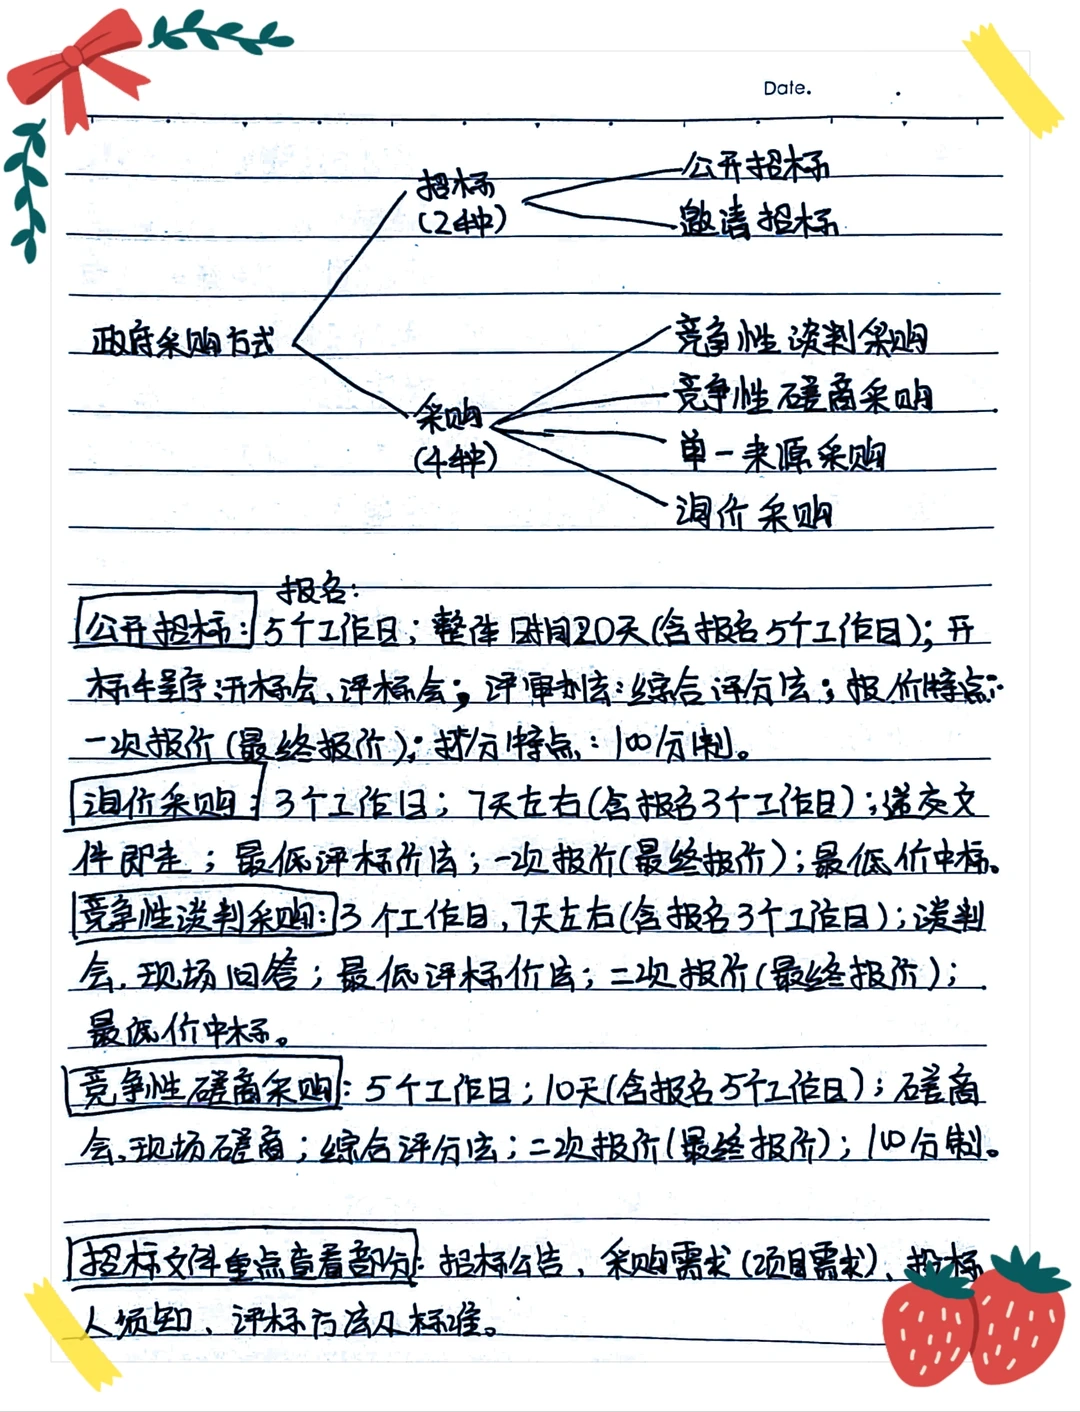 Date.
招标
(2种)
公开招标
邀请招标
政府采购方式
采购
(4种)
竞争性谈判采购
竞争性磋商采购
单一来源采购
询价采购
报名:
公开招标: 5个工作日; 整体时间20天(含报名5个工作日); 开
标程序:开标会、评标会; 评审办法:综合评分法; 报价特点:
一次报价(最终报价); 打分特点: 100分制。
询价采购: 3个工作日; 7天左右(含报名3个工作日); 递交文
件即走; 最低评标价法; 一次报价(最终报价); 最低价中标。
竞争性谈判采购: 3个工作日, 7天左右(含报名3个工作日); 谈判
会、现场问答; 最低评标价法; 二次报价(最终报价);
最低价中标。
竞争性磋商采购: 5个工作日; 10天(含报名5个工作日); 磋商
会、现场磋商; 综合评分法; 二次报价(最终报价); 100分制。
招标文件重点查看部分: 招标公告、采购需求(项目需求)、投标
人须知、评标方法及标准。